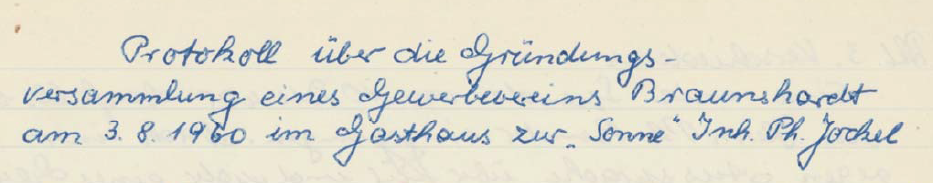 Protokoll über die Gründungs-
versammlung eines Gewerbevereins Braunshardt
am 3. 8. 1960 im Gasthaus zur „Sonne“ Inh. Ph. Jockel